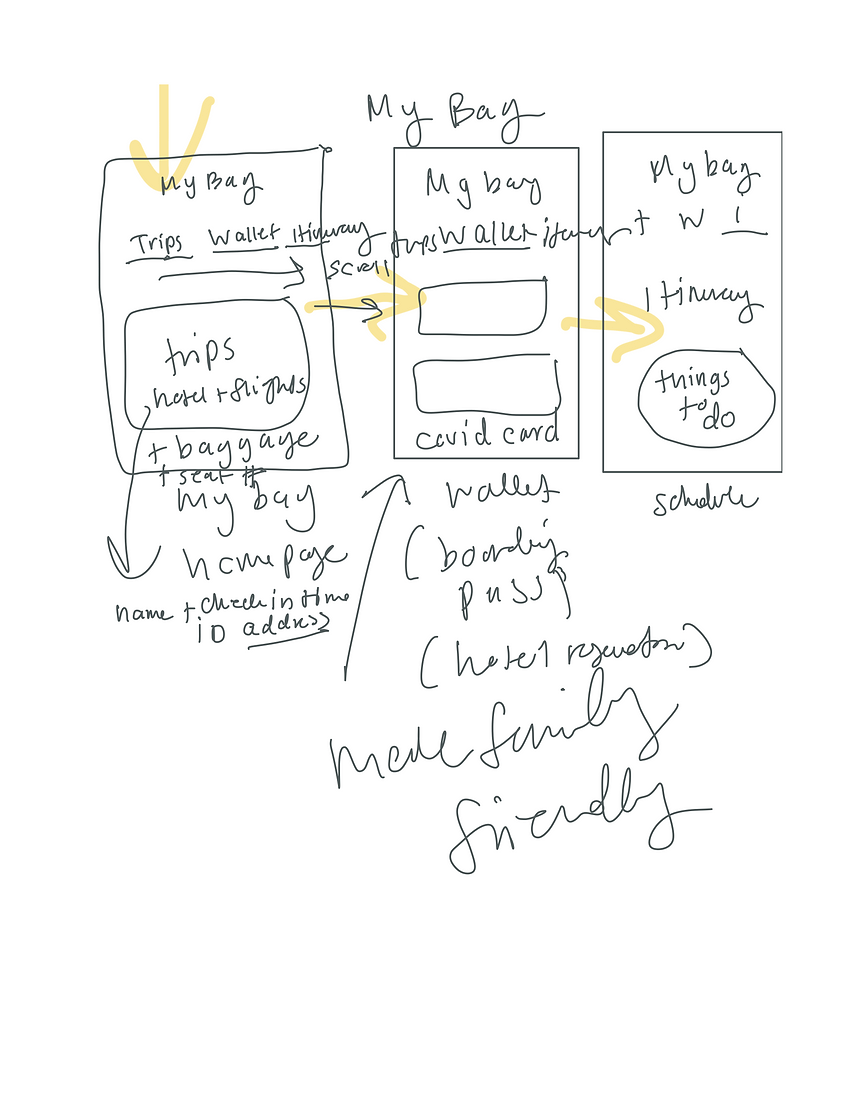 My Bag
My Bag
Trips Wallet Itinerary
scroll
trips
hotel + flights
+ baggage
+ seat #
my bag
homepage
name + check in time
ID address
My bag
trips Wallet
covid card
wallet
(boarding
pass)
(hotel reservation)
made family
friendly
My bag
t w i
Itinerary
things
to do
schedule